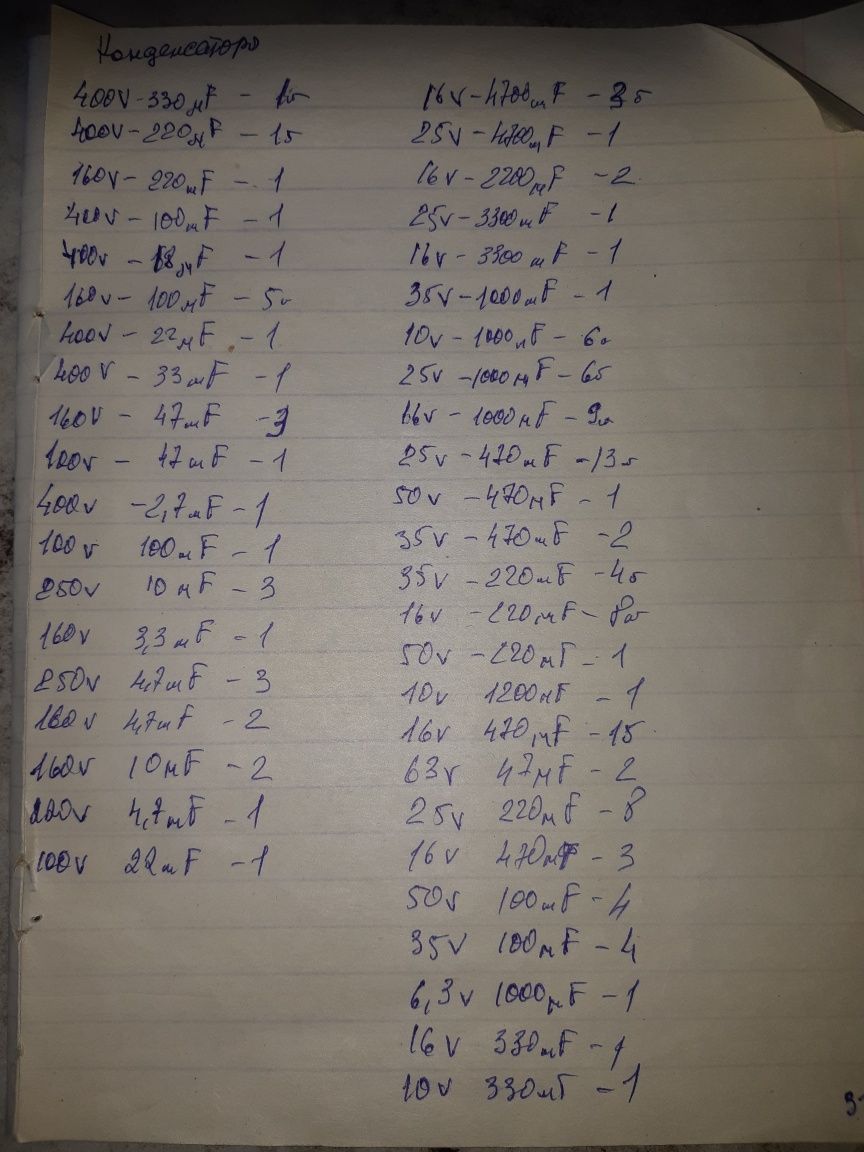 Конденсаторы
400V-330мF - 1б
400V-220мF - 1б
160V-220мF - 1
400V-100мF - 1
400V-18мF - 1
160V-100мF - 5
400V-22мF - 1
400V-33мF - 1
160V-47мF - 3
100V-47мF - 1
400V-2,7мF - 1
100V 100мF - 1
250V 10мF - 3
160V 3,3мF - 1
250V 4,7мF - 3
160V 4,7мF - 2
160V 10мF - 2
200V 4,7мF - 1
100V 22мF - 1
16V-4700мF - 3б
25V-4700мF - 1
16V-2200мF - 2
25V-3300мF - 1
16V-3300мF - 1
35V-1000мF - 1
10V-1000мF - 6
25V-1000мF - 6б
16V-1000мF - 9
25V-470мF - 13
50V-470мF - 1
35V-470мF - 2
35V-220мF - 4б
16V-220мF - 8
50V-220мF - 1
10V 1200мF - 1
16V 470мF - 15
63V 47мF - 2
25V 220мF - 8
16V 470мF - 3
50V 100мF - 4
35V 100мF - 4
6,3V 1000мF - 1
16V 330мF - 1
10V 330мF - 1